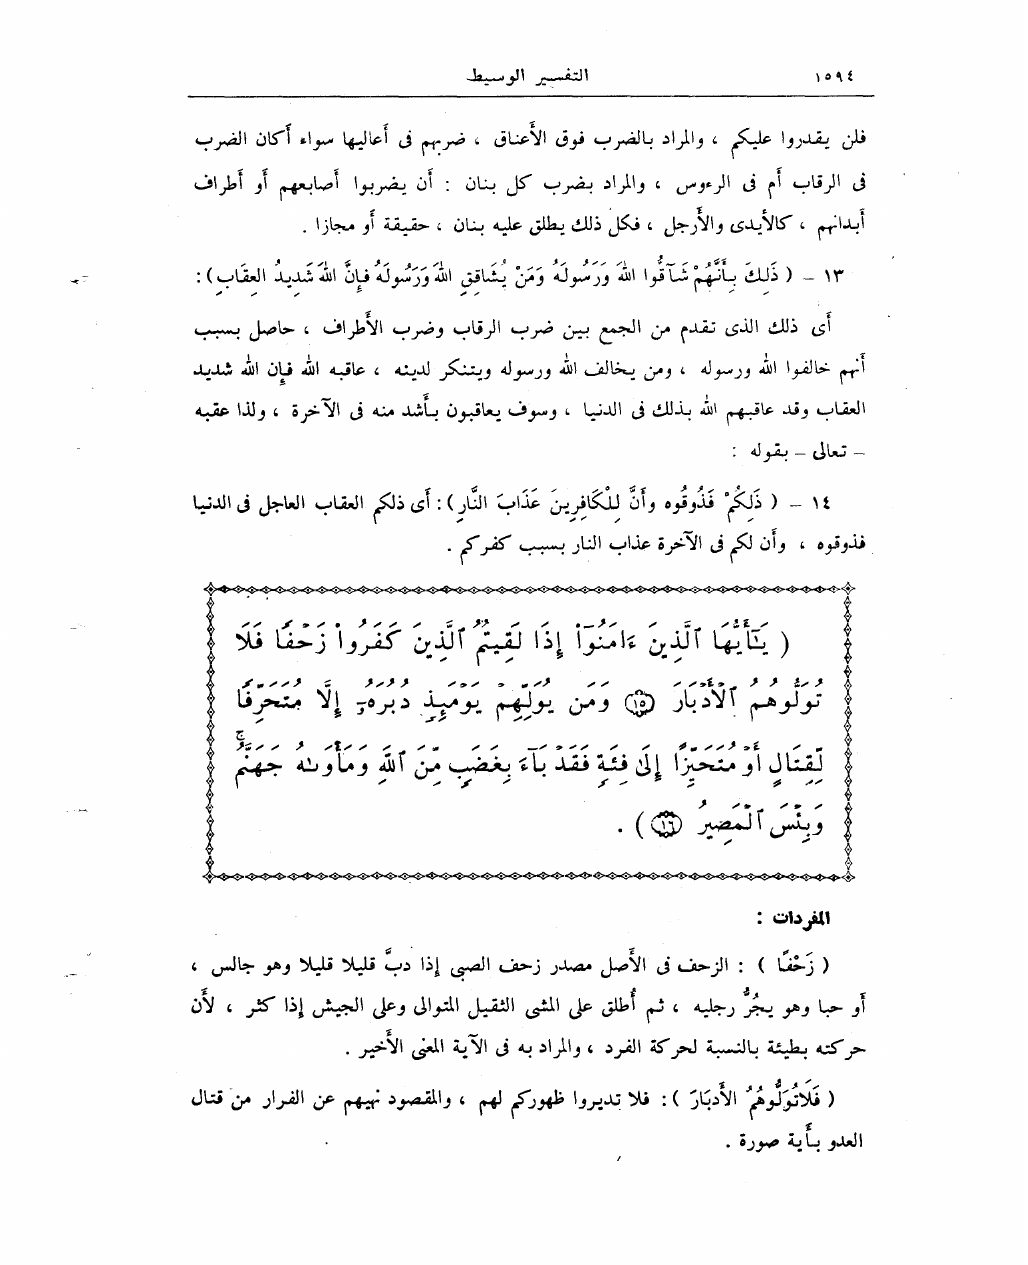 ١٥٩٤ التفسير الوسيط
فلن يقدروا عليكم ، والمراد بالضرب فوق الأعناق ، ضربهم فى أعاليها سواء أكان الضرب
فى الرقاب أم فى الرءوس ، والمراد بضرب كل بنان : أن يضربوا أصابعهم أو أطراف
أبدانهم ، كالأيدى والأرجل ، فكل ذلك يطلق عليه بنان ، حقيقة أو مجازا .
١٣ – ( ذَلِكَ بِأَنَّهُمْ شَآقُّوا اللهَ وَرَسُولَهُ وَمَنْ يُشَاقِقِ اللهَ وَرَسُولَهُ فَإِنَّ اللهَ شَدِيدُ العِقَابِ) :
أى ذلك الذى تقدم من الجمع بين ضرب الرقاب وضرب الأطراف ، حاصل بسبب
أنهم خالفوا الله ورسوله ، ومن يخالف الله ورسوله ويتنكر لدينه ، عاقبه الله فإن الله شديد
العقاب وقد عاقبهم الله بذلك فى الدنيا ، وسوف يعاقبون بأشد منه فى الآخرة ، ولذا عقبه
– تعالى – بقوله :
١٤ – ( ذَلِكُمْ فَذُوقُوه وأَنَّ لِلْكَافِرِينَ عَذَابَ النَّارِ) : أى ذلكم العقاب العاجل فى الدنيا
فذوقوه ، وأن لكم فى الآخرة عذاب النار بسبب كفركم .
( يَٰٓأَيُّهَا ٱلَّذِينَ ءَامَنُوٓاْ إِذَا لَقِيتُمُ ٱلَّذِينَ كَفَرُواْ زَحْفًا فَلَا
تُوَلُّوهُمُ ٱلْأَدْبَارَ ١٥ وَمَن يُوَلِّهِمْ يَوْمَئِذٍ دُبُرَهُۥٓ إِلَّا مُتَحَرِّفًا
لِّقِتَالٍ أَوْ مُتَحَيِّزًا إِلَىٰ فِئَةٍ فَقَدْ بَآءَ بِغَضَبٍ مِّنَ ٱللَّهِ وَمَأْوَىٰهُ جَهَنَّمُۖ
وَبِئْسَ ٱلْمَصِيرُ ١٦ ) .
المفردات :
( زَحْفًا ) : الزحف فى الأصل مصدر زحف الصبى إذا دبَّ قليلا قليلا وهو جالس ،
أو حبا وهو يجُرُّ رجليه ، ثم أُطلق على المشى الثقيل المتوالى وعلى الجيش إذا كثر ، لأن
حركته بطيئة بالنسبة لحركة الفرد ، والمراد به فى الآية المعنى الأخير .
( فَلَاتُوَلُّوهُمُ الأَدبَارَ ) : فلا تديروا ظهوركم لهم ، والمقصود نهيهم عن الفرار من قتال
العدو بأَية صورة .